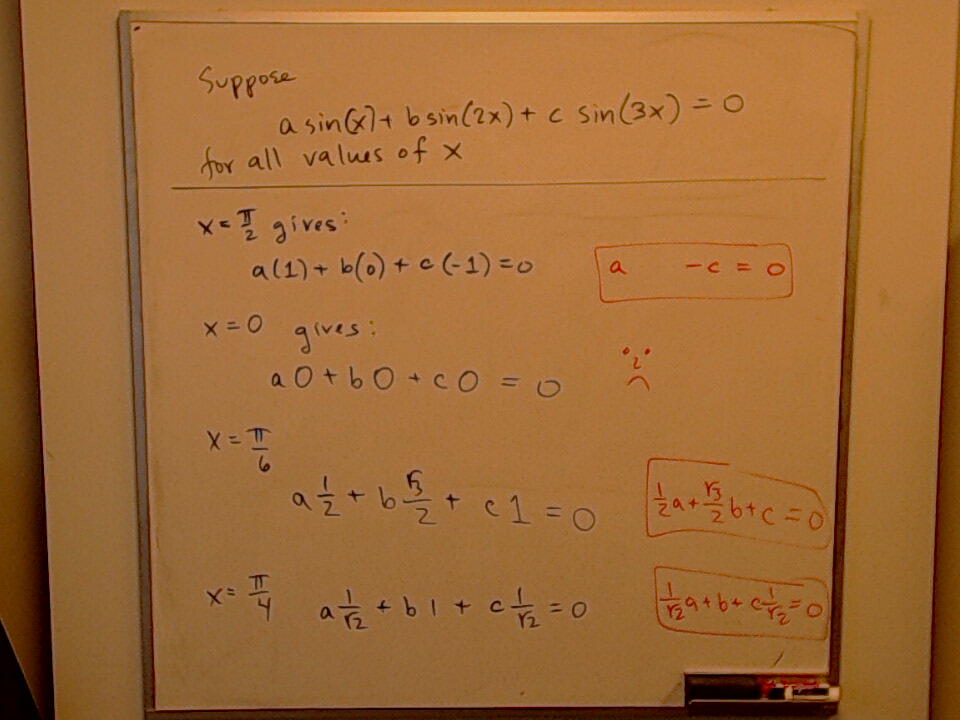 Suppose
a sin(x) + b sin(2x) + c sin(3x) = 0
for all values of x
x = π/2 gives:
a(1) + b(0) + c(-1) = 0
a - c = 0
x = 0 gives:
a0 + b0 + c0 = 0
x = π/6
a 1/2 + b √3/2 + c1 = 0
1/2 a + √3/2 b + c = 0
x = π/4
a 1/√2 + b1 + c 1/√2 = 0
1/√2 a + b + c 1/√2 = 0